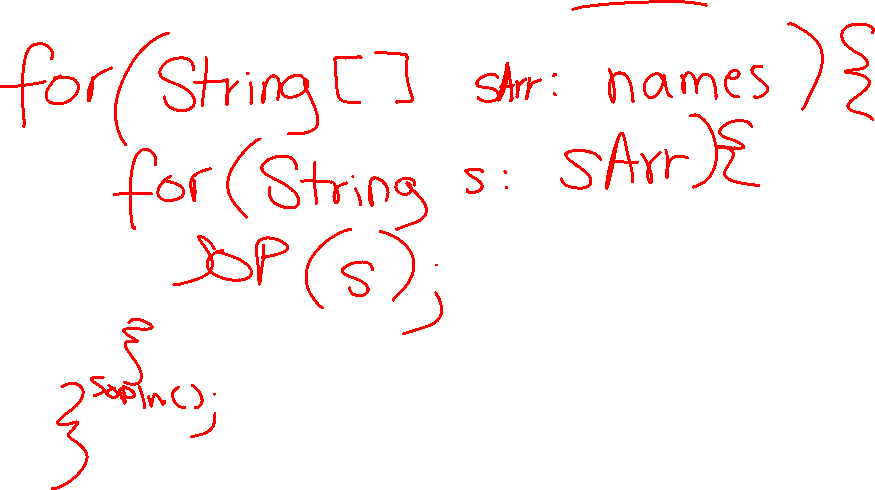 for(String[] sArr: names){
for(String s: sArr){
SOP(s);
}
Sopln();
}